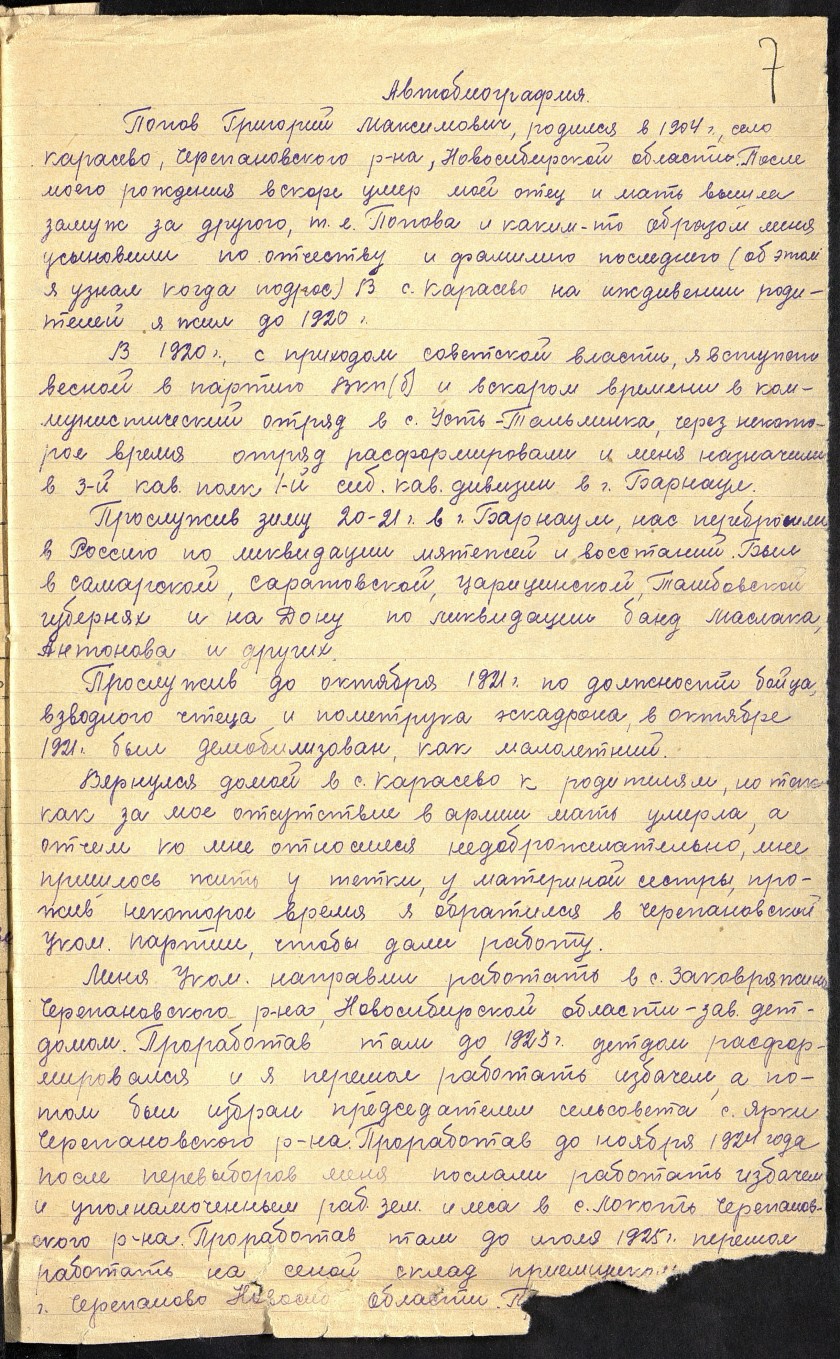 7
Автобиография.
Попов Григорий Максимович, родился в 1904 г., село
Карасево, Черепановского р-на, Новосибирской области. После
моего рождения вскоре умер мой отец и мать вышла
замуж за другого, т.е. Попова и каким-то образом меня
усыновили по отчеству и фамилию последнего (об этом
я узнал когда подрос) В с. Карасево на иждивении роди-
телей я жил до 1920 г.
В 1920 г., с приходом советской власти, я вступил
весной в партию ВКП(б) и вскором времени в ком-
мунистический отряд в с. Усть-Тальминка, через некото-
рое время отряд расформировали и меня назначили
в 3-й кав. полк 1-й сиб. кав. дивизии в г. Барнаул.
Прослужив зиму 20-21 г. в г. Барнаул, нас перебросили
в Россию по ликвидации мятежей и восстаний. Был
в Самарской, Саратовской, Царицинской, Тамбовской
губернях и на Дону по ликвидации банд Маслака,
Антонова и других.
Прослужив до октября 1921 г. по должности бойца,
взводного чтеца и политрука эскадрона, в октябре
1921 г. был демобилизован, как малолетний.
Вернулся домой в с. Карасево к родителям, но так
как за мое отсутствие в армии мать умерла, а
отчим ко мне относился недоброжелательно, мне
пришлось жить у тетки, у материной сестры, про-
жив некоторое время я обратился в Черепановский
Уком. партии, чтобы дали работу.
Меня Уком. направил работать в с. Заковряжино
Черепановского р-на, Новосибирской области - зав. дет-
домом. Проработав там до 1923 г. детдом расфор-
мировался и я перешол работать избачем, а по-
том был избран председателем сельсовета с. Ярки
Черепановского р-на. Проработав до ноября 1924 года
после перевыборов меня послали работать избачем
и уполнамоченным раб. зем. и леса в с. Локоть Черепанов-
ского р-на. Проработав там до июля 1925 г. перешол
работать на сеной склад приемщиком
г. Черепаново области.